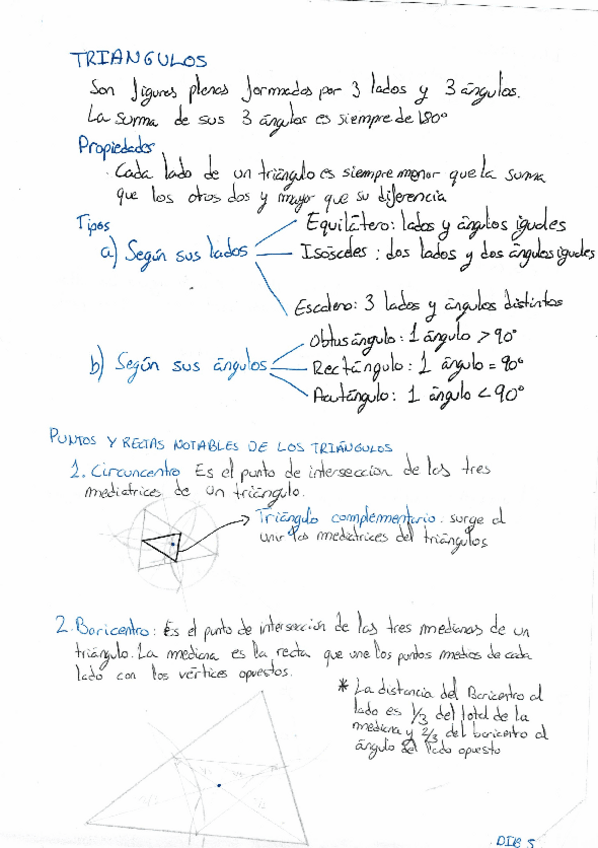 TRIANGULOS
Son figuras planas formadas por 3 lados y 3 ángulos.
La suma de sus 3 ángulos es siempre de 180°
Propiedades
· Cada lado de un triángulo es siempre menor que la suma
que los otros dos y mayor que su diferencia
Tipos
a) Según sus lados
Equilátero: lados y ángulos iguales
Isósceles: dos lados y dos ángulos iguales
Escaleno: 3 lados y ángulos distintos
b) Según sus ángulos
Obtusángulo: 1 ángulo > 90°
Rectángulo: 1 ángulo = 90°
Acutángulo: 1 ángulo < 90°
PUNTOS Y RECTAS NOTABLES DE LOS TRIÁNGULOS
1. Circuncentro Es el punto de intersección de las tres
mediatrices de un triángulo.
Triángulo complementario. surge al
unir las mediatrices del triángulos
2. Baricentro: Es el punto de intersección de las tres medianas de un
triángulo. La mediana es la recta que une los puntos medios de cada
lado con los vértices opuestos.
* La distancia del Baricentro al
lado es 1/3 del total de la
mediana y 2/3 del baricentro al
ángulo del lado opuesto
DIB 5